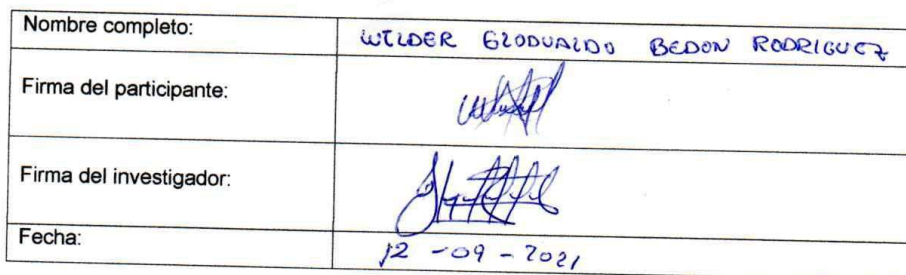 Nombre completo: WILDER GLODUALDO BEDON RODRIGUEZ
Firma del participante:
Firma del investigador:
Fecha: 12 - 09 - 2021